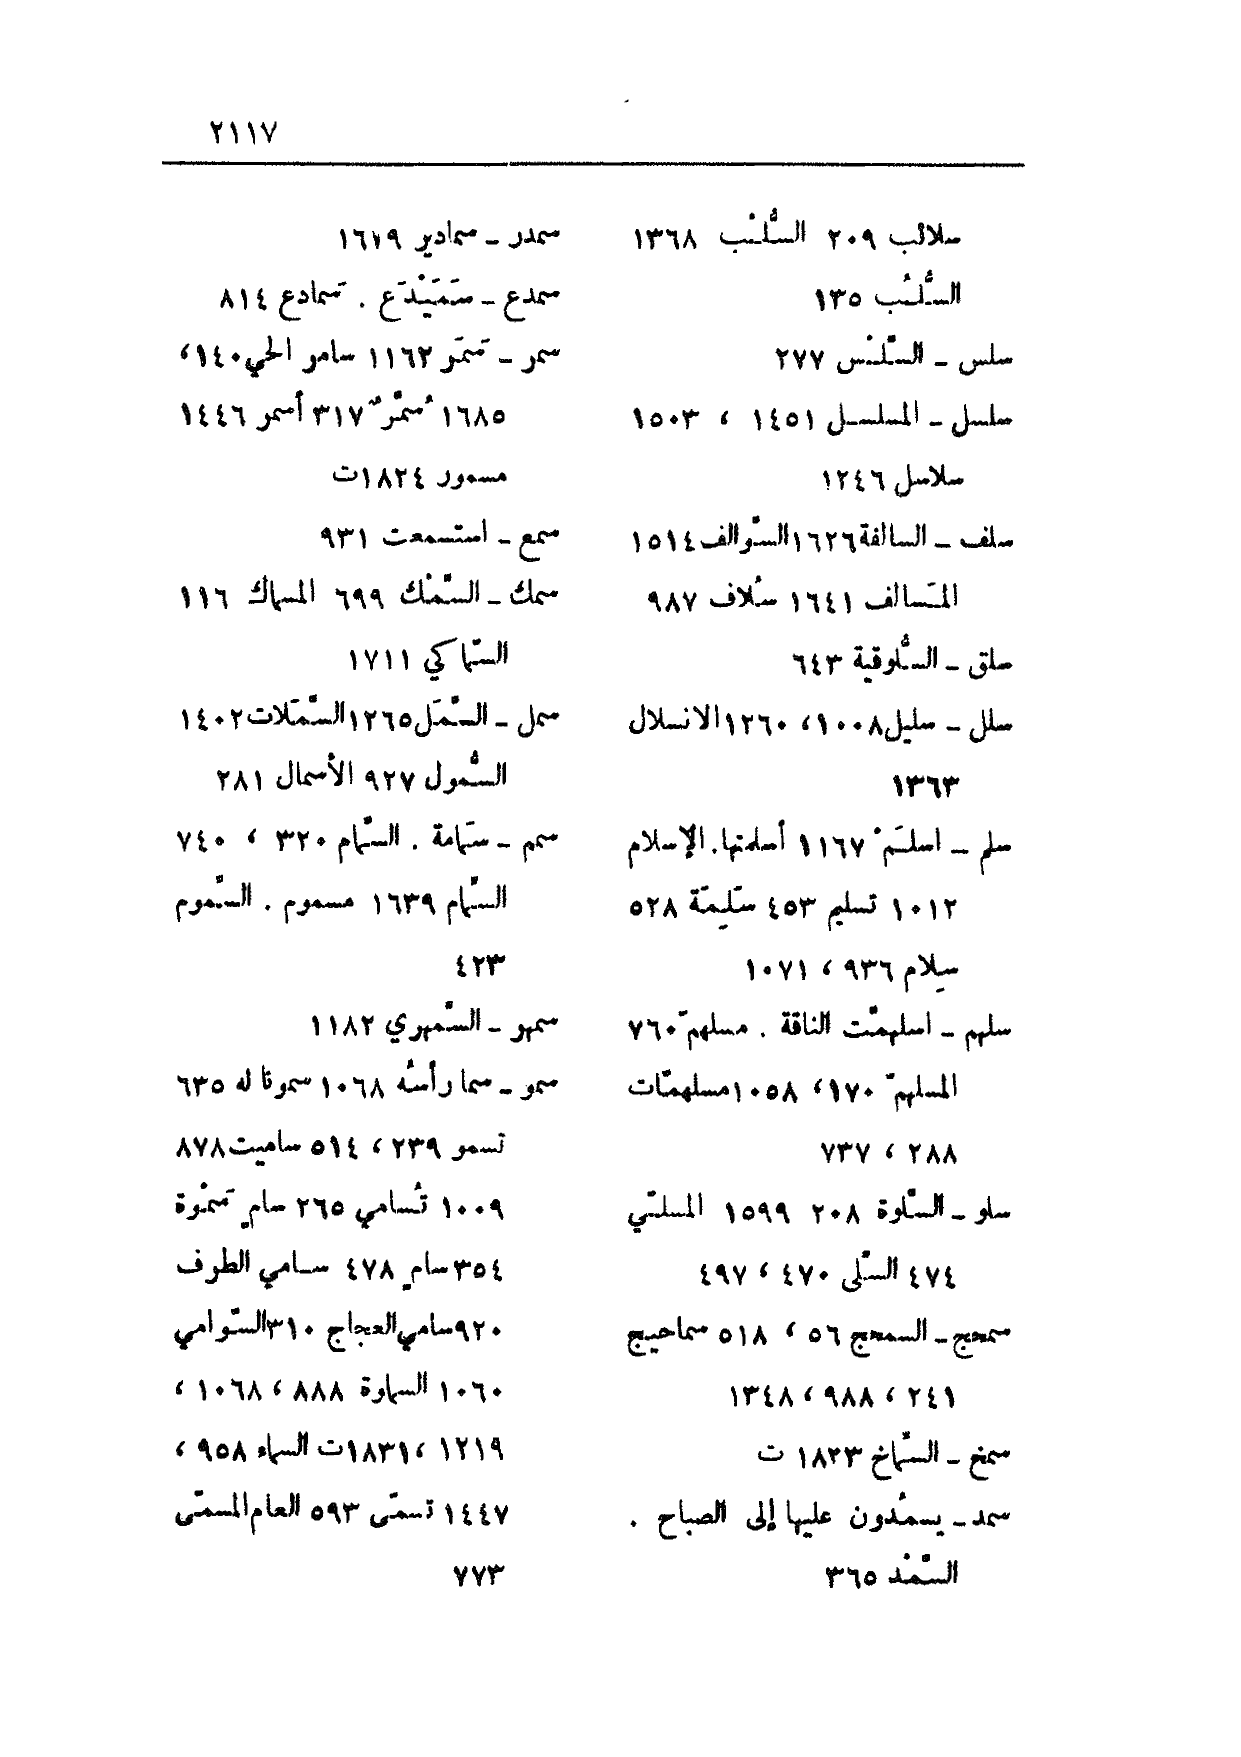 ٢١١٧
سلائب ٢٠٩ السُّلْب ١٣٦٨
السُّلُب ١٣٥
سلس ـ السَّلْس ٢٧٧
سلسل ـ المسلسل ١٤٥١ ، ١٥٠٣
سلاسل ١٢٤٦
سلف ـ السالفة ١٦٢٦ السَّوالف ١٥١٤
المَسالف ١٦٤١ سُلاف ٩٨٧
سلق ـ السُّلوقية ٦٤٣
سلل ـ سليل ١٠٠٨، ١٢٦٠ الانسلال
١٣٦٣
سلم ـ اسلَمْ ١١٦٧ أسلمتها. الإسلام
١٠١٢ تسليم ٤٥٣ سَلِيمَة ٥٢٨
سِلام ٩٣٦ ، ١٠٧١
سلهم ـ اسلهمَّت الناقة . مسلهمّ ٧٦٠
المسلهمّ ١٧٠، ١٠٥٨ مسلهمّات
٢٨٨ ، ٧٣٧
سلو ـ السَّلوة ٢٠٨ ١٥٩٩ المسلّي
٤٧٤ السَّلى ٤٧٠ ، ٤٩٧
سمحج ـ السمحج ٥٦ ، ٥١٨ سماحيج
٢٤١ ، ٩٨٨ ، ١٣٤٨
سمخ ـ السِّماخ ١٨٢٣ ت
سمد ـ يسمُدون عليها إلى الصباح .
السَّمْد ٣٦٥
سمدر ـ سمادير ١٦١٩
سمدع ـ سَمَيْدَع . سَمادع ٨١٤
سمر ـ سَمَر ١١٦٢ سامر الحي ١٤٠،
١٦٨٥ سُمَّرٌ ٣١٧ أسمر ١٤٤٦
مسمور ١٨٢٤ت
سمع ـ استسمعت ٩٣١
سمك ـ السَّمْك ٦٩٩ المسماك ١١٦
السِّماكي ١٧١١
سمل ـ السَّمَل ١٢٦٥ السَّمَلات ١٤٠٢
السُّمول ٩٢٧ الأسمال ٢٨١
سمم ـ سَمامة . السَّمام ٣٢٠ ، ٧٤٠
السِّمام ١٦٣٩ مسموم . السَّموم
٤٢٣
سمهر ـ السَّمهري ١١٨٢
سمو ـ سما رأسُه ١٠٦٨ سمونا له ٦٣٥
تسمو ٢٣٩ ، ٥١٤ ساميت ٨٧٨
١٠٠٩ تُسامي ٢٦٥ سامٍ سَمْوة
٣٥٤ سامٍ ٤٧٨ سامي الطرف
٩٢٠ سامي العجاج ٣١٠ السَّوامي
١٠٦٠ السماوة ٨٨٨ ، ١٠٦٨ ،
١٢١٩ ، ١٨٣١ت السماء ٩٥٨ ،
١٤٤٧ تسمّى ٥٩٣ العام المسمّى
٧٧٣